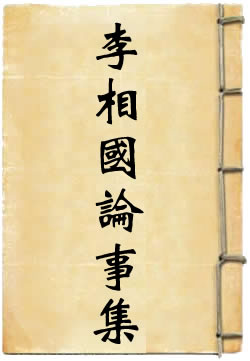 李相國論事集